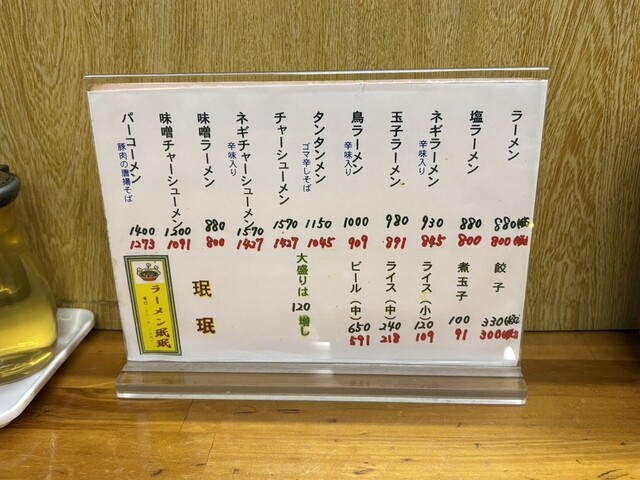 ラーメン 880(税込) 800(税抜)
塩ラーメン 880 800
ネギラーメン 辛味入り 930 845
玉子ラーメン 980 891
鳥ラーメン 辛味入り 1000 909
タンタンメン ゴマ辛しそば 1150 1045
チャーシューメン 1570 1427
ネギチャーシューメン 辛味入り 1570 1427
味噌ラーメン 880 800
味噌チャーシューメン 1200 1091
パーコーメン 豚肉の唐揚そば 1400 1273
餃子 330(税込) 300(税抜)
煮玉子 100 91
ライス(小) 120 109
ライス(中) 240 218
ビール(中) 650 591
大盛りは 120 増し
珉珉
ラーメン珉珉